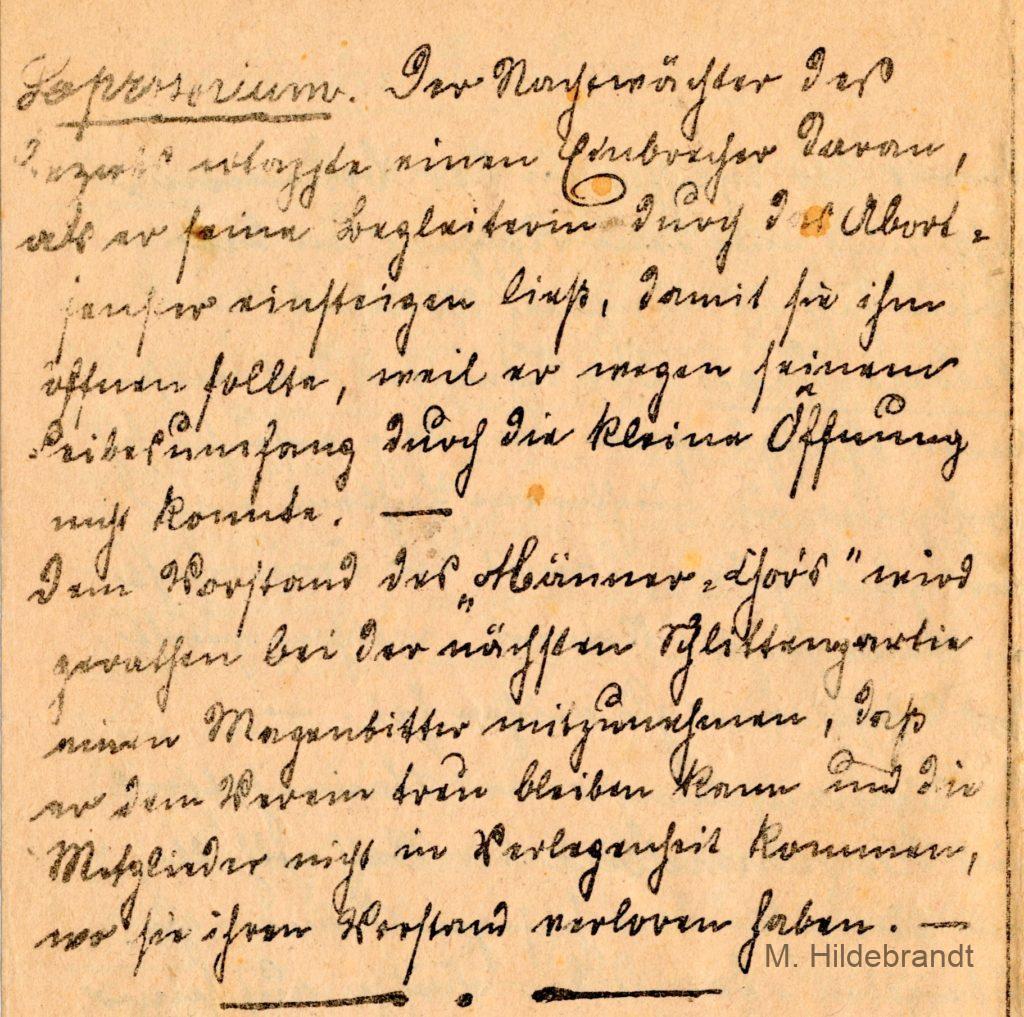 Leprosorium. Der Nachtwächter des
Bezirks ertappte einen Einbrecher daran,
als er seine Begleiterin durch das Abort-
fenster einsteigen ließ, damit sie ihm
öffnen sollte, weil er wegen seinem
Leibesumfang durch die kleine Öffnung
nicht konnte. —
Dem Vorstand des „Männer-Chors" wird
gerathen bei der nächsten Schlittenpartie
einen Magenbitter mitzunehmen, daß
er dem Verein treu bleiben kann und die
Mitglieder nicht in Verlegenheit kommen,
wo sie ihren Vorstand verloren haben. —
M. Hildebrandt